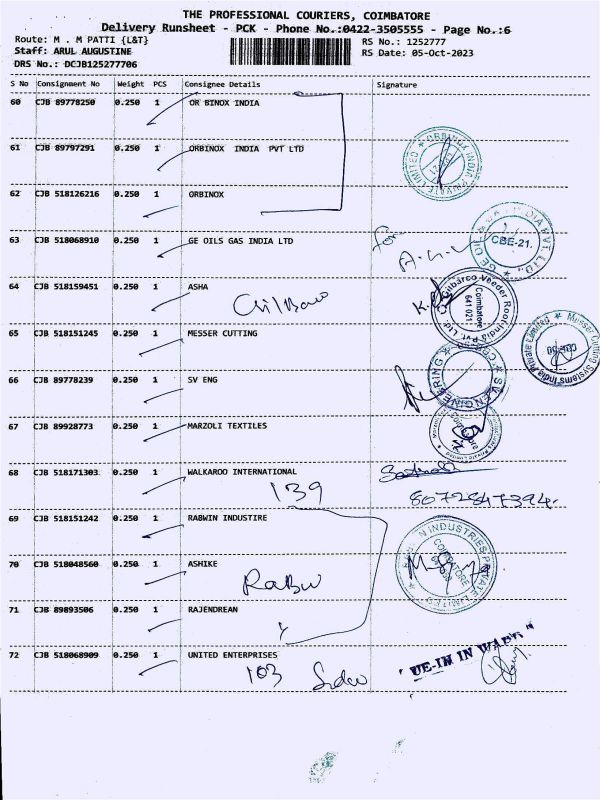 THE PROFESSIONAL COURIERS, COIMBATORE
Delivery Runsheet - PCK - Phone No.:0422-3505555 - Page No.:6
Route: M . M PATTI {L&T}
RS No.: 1252777
Staff: ARUL AUGUSTINE
RS Date: 05-Oct-2023
DRS No.: DCJB125277706
S No Consignment No Weight PCS Consignee Details Signature
60 CJB 89778250 0.250 1 OR BINOX INDIA
61 CJB 89797291 0.250 1 ORBINOX INDIA PVT LTD
ORBINOX INDIA PRIVATE LIMITED
62 CJB 518126216 0.250 1 ORBINOX
63 CJB 518068910 0.250 1 GE OILS GAS INDIA LTD
for
CBE-21.
64 CJB 518159451 0.250 1 ASHA
Gilbarco Veeder Root India Pvt. Ltd.
Coimbatore
641 021
65 CJB 518151245 0.250 1 MESSER CUTTING
Messer Cutting Systems India Private Limited
66 CJB 89778239 0.250 1 SV ENG
SV ENGINEERING
67 CJB 89928773 0.250 1 MARZOLI TEXTILES
68 CJB 518171303 0.250 1 WALKAROO INTERNATIONAL
139
8072847394.
69 CJB 518151242 0.250 1 RABWIN INDUSTIRE
INDUSTRIES PRIVATE LIMITED
COIMBATORE
70 CJB 518048560 0.250 1 ASHIKE
RABW
71 CJB 89893506 0.250 1 RAJENDREAN
72 CJB 518068909 0.250 1 UNITED ENTERPRISES
103